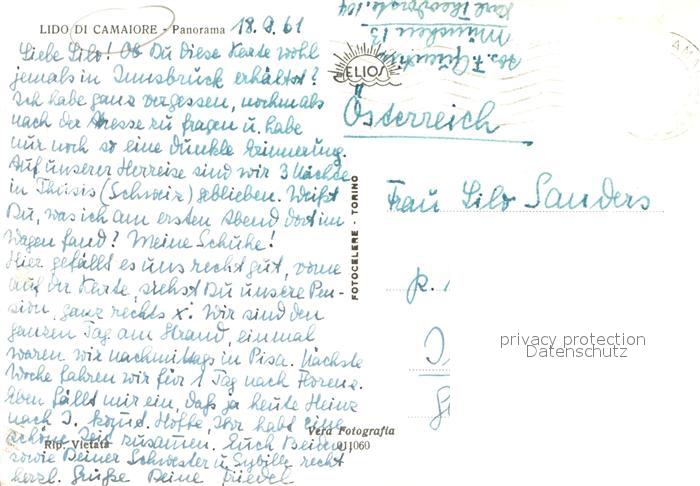 LIDO DI CAMAIORE - Panorama 18.9.61
Liebe Lilo! Ob Du diese Karte wohl
jemals in Innsbruck erhältst?
Ich habe ganz vergessen, nochmals
nach der Adresse zu fragen u. habe
nur noch so eine dunkle Erinnerung.
Auf unserer Herreise sind wir 3 Nächte
in Thusis (Schweiz) geblieben. Weißt
Du, was ich am ersten Abend dort im
Wagen fand? Meine Schuhe!
Hier gefällt es uns recht gut, vorne
auf der Karte, siehst Du unsere Pen-
sion, ganz rechts x. Wir sind den
ganzen Tag am Strand, einmal
waren wir nachmittags in Pisa. Nächste
Woche fahren wir für 1 Tag nach Florenz.
Eben fällt mir ein, daß ja heute Heinz
nach I. kommt. Hoffe, Ihr habt eine
schöne Zeit zusammen. Euch Beiden
sowie Deiner Schwester u. Sybille recht
herzl. Grüße Deine Friedel
Rip. Vietata
Vera Fotografia
011060
FOTOCELERE - TORINO
ELIOS
München 13
Karl Theodorstr. 104
Österreich
Frau Lilo Sanders
p.
I
privacy protection
Datenschutz